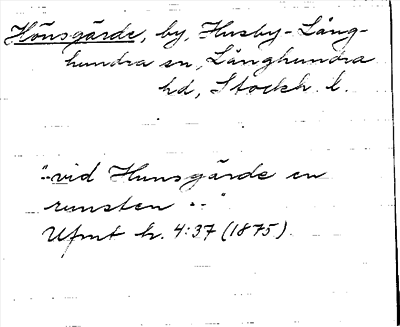 Hönsgärde, by, Husby-Lång-
hundra sn, Långhundra
hd, Stockh. l.
"--vid Hunsgärde en
runsten --"
Ufmt h. 4:37 (1875).